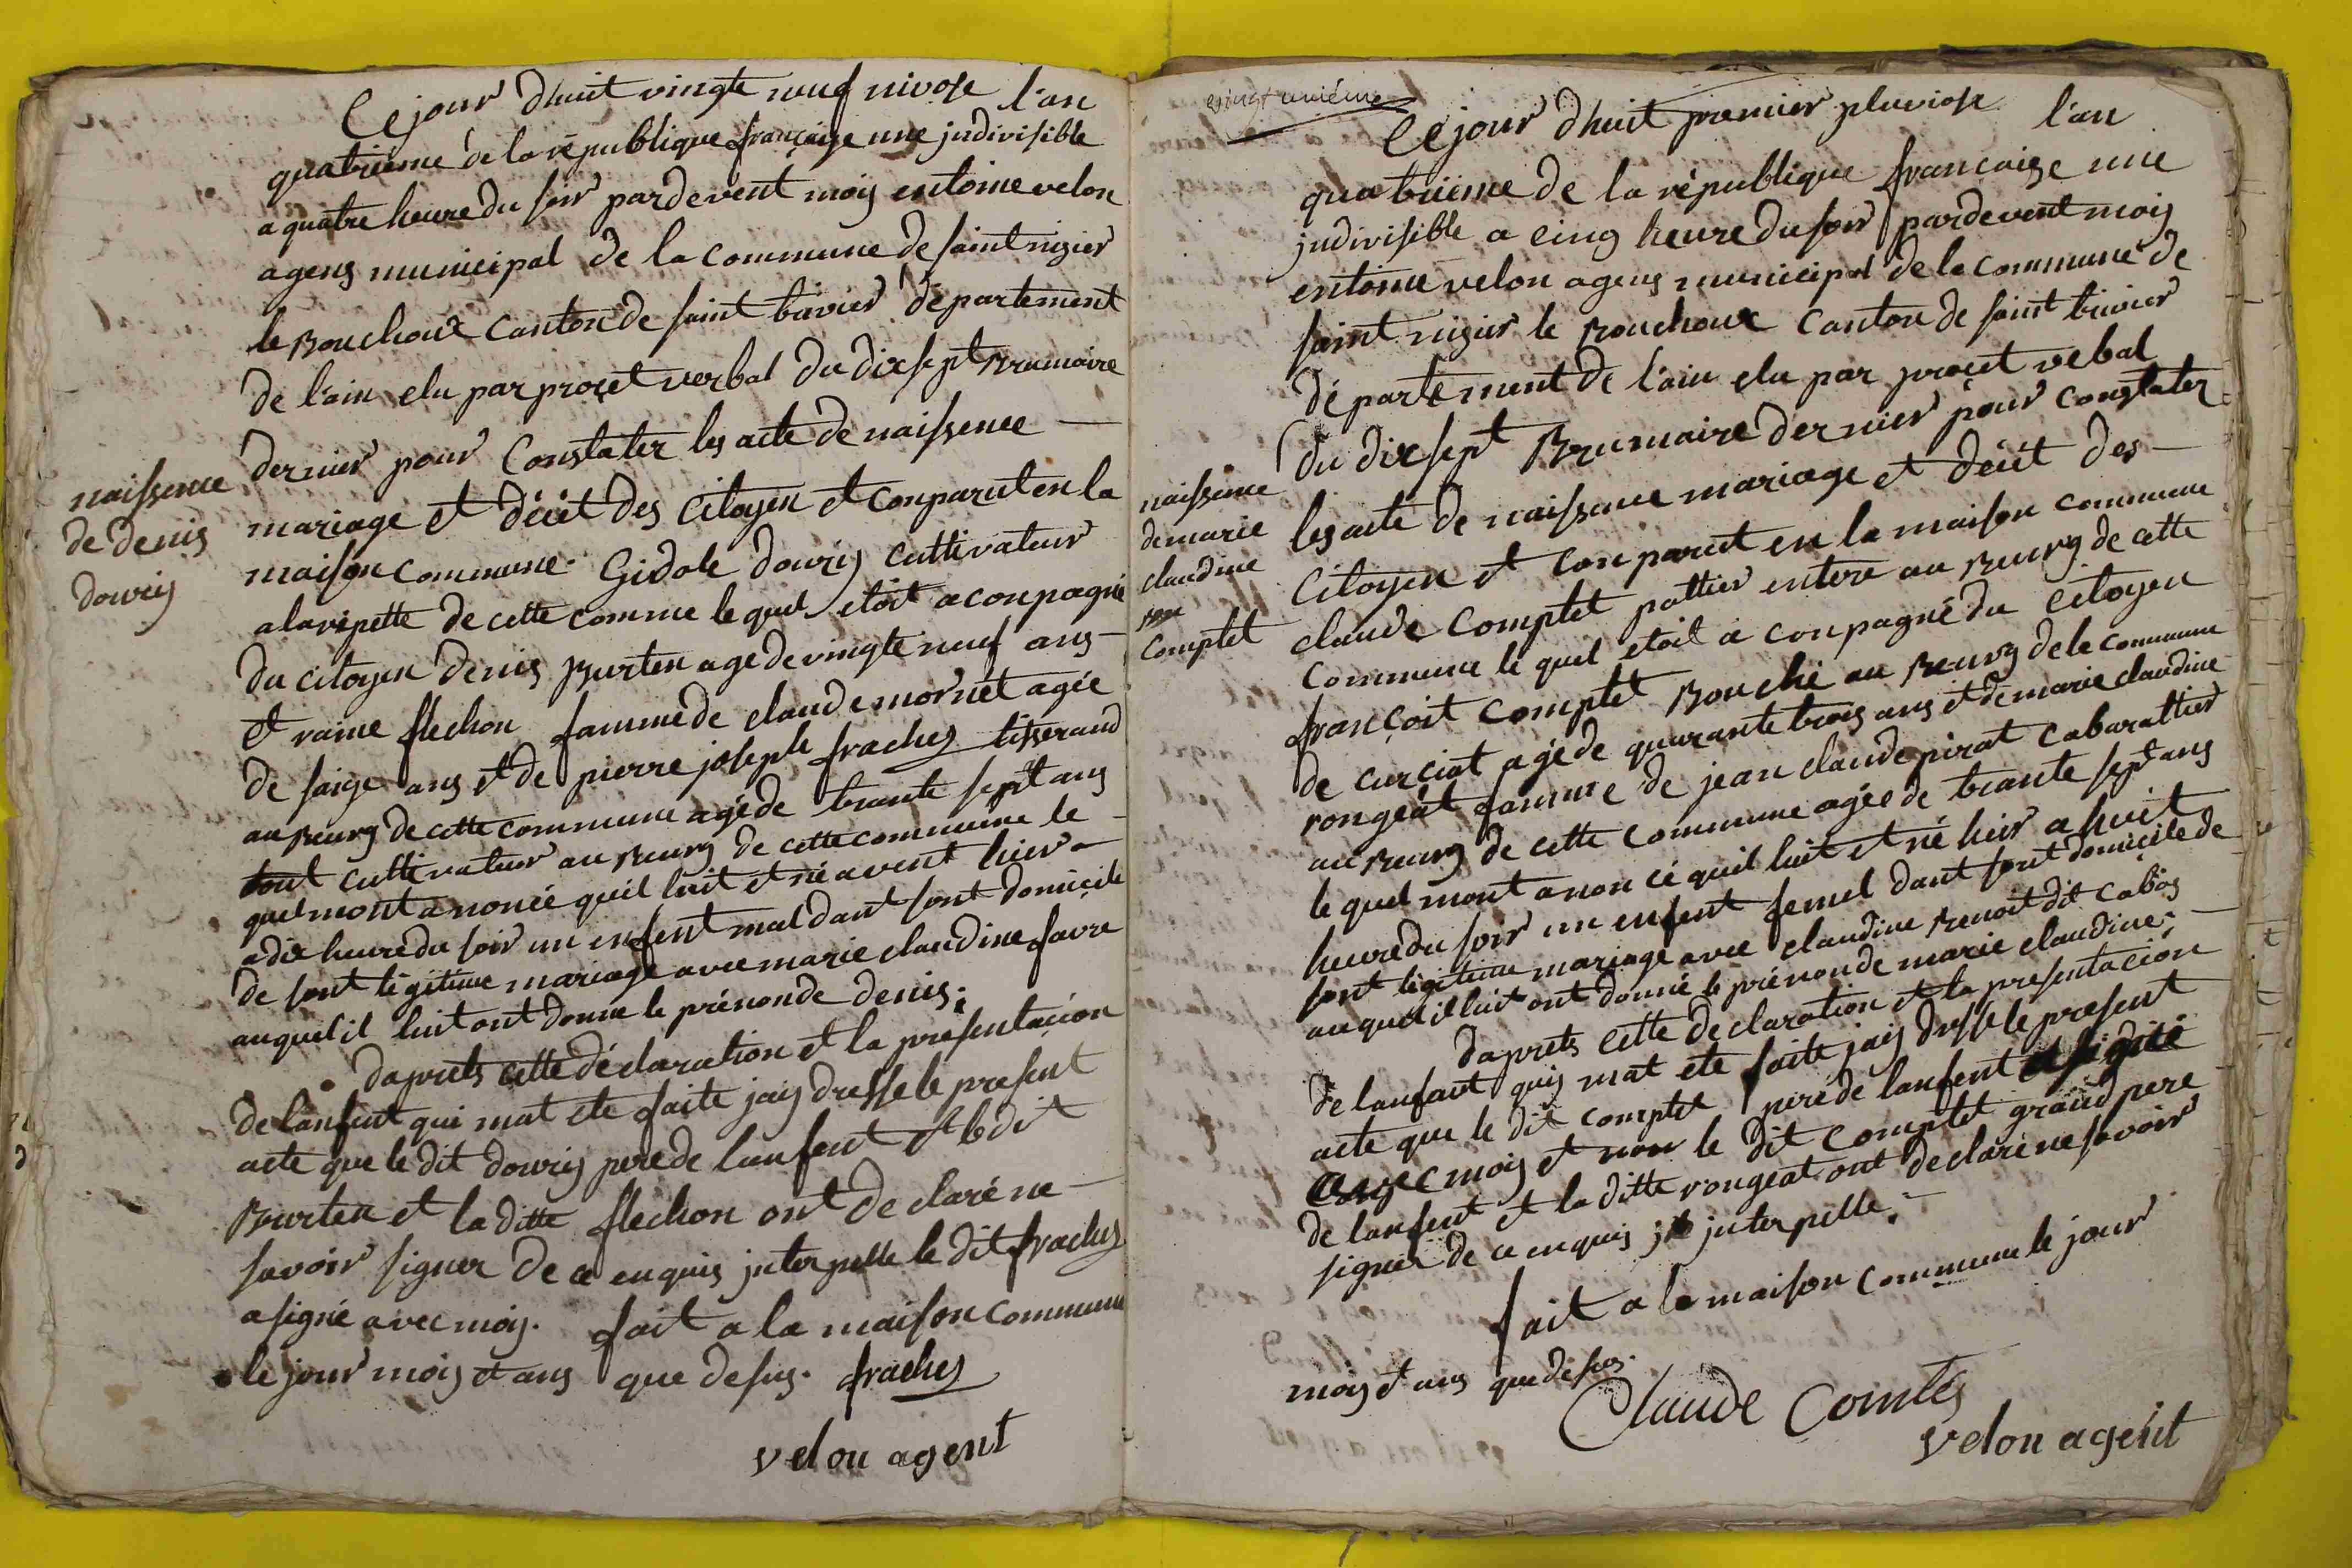 Ce jour dhuit vingte neuf nivose l'an
quatrieme de la république française une jndivisible
a quatre heure du soir pardevent mois entoine velon
agens municipal de la commune de saint nizier
le Bouchoux canton de saint trivier département
de l'ain elu par proçet verbal du dixsept Brumaire
dernier pour Constater les acte de naissence
mariage et décét des citoyen et conparut en la
maison commune. Gidole douris cultivateur
a la ripette de cette comme le quel etoit aconpagné
du citoyen denis Burten age de vingte neuf ans
et raine flechon famme de claude mornet agée
de saige ans et de pierre joseph fraches tisserand
au Bourg de cette commune agéde trante sept ans
tout cultivateur au Bourg de cette commune le
quel mont anoncé quil luit et né avent hier
a dix heure du soir un enfent mal dant sont domicile
de sont légitime mariage avec marie claudine favre
auquel il luit ont donne le prénon de denis.
daprets cette déclaration et la presentacion
de lanfent qui mat ete faite jais dresse le present
acte que le dit douris pere de lanfent et le dit
Burten et la ditte flechon ont declaré ne
savoir signer de ce enquis jnterpelle le dit fraches
a signé avec mois. fait a la maison commune
le jour mois et ans que desus. fraches
velon agent
naissence
de denis
douris
vingt unième
Ce jour dhuit premier pluviose l'an
quatrieme de la république francaise une
jndivisible a cinq heure du soir pardevent mois
entoine velon agens municipal de la commune de
saint nizier le Bouchoux canton de saint trivier
département de l'ain elu par proçet vebal
du dixsept Brumaire dernier pour constater
les acte de naissance mariage et décét des
citoyen et conparut en la maison commune
claude comptet pattier entore au Bourg de cette
commune le quel etoit a conpagné du citoyen
françoit comptet Bouché au Bourg de le commune
de curciat agéde quarante trois ans et de marie claudine
rongeat famme de jean claude pirat cabarattier
au Bourg de cette commune agée de trante sept ans
le quel mont anoncé quil luit et né hier a huit
heure du soir un enfent femel dant sont domicile de
sont légitime mariage avec claudine Benoit dit cabos
au quel il luit ont donné le prénon de marie claudine.
daprets cette declaration et la presentacion
de lanfant quis mat ete faite jais dresse le present
acte que le dit comptet pere de lanfent a signé
avec mois et non le dit comptet grand pere
de lanfent et la ditte rongeat ont declaré ne savoir
signer de ce enquis jnterpelle.
fait a la maison commune le jour
mois et ans que desus.
Claude Comtes
velon agent
naissence
de marie
claudine
comptet